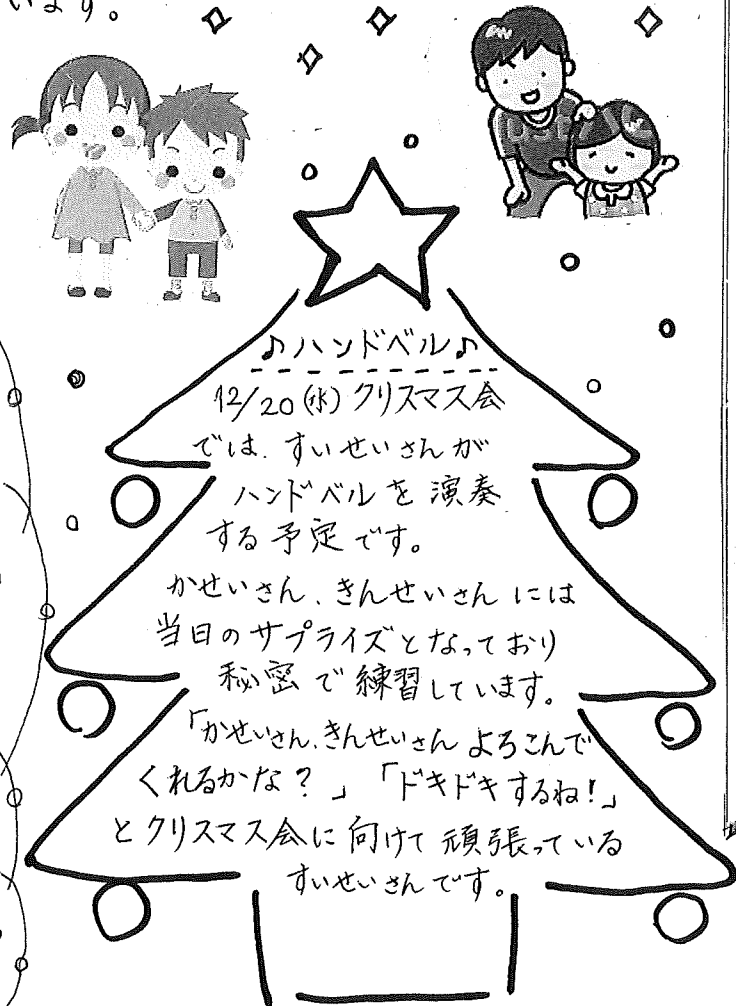 います。
♪ハンドベル♪
12/20(水)クリスマス会
では、すいせいさんが
ハンドベルを演奏
する予定です。
かせいさん、きんせいさんには
当日のサプライズとなっており
秘密で練習しています。
「かせいさん、きんせいさんよろこんで
くれるかな?」「ドキドキするね!」
とクリスマス会に向けて頑張っている
すいせいさんです。